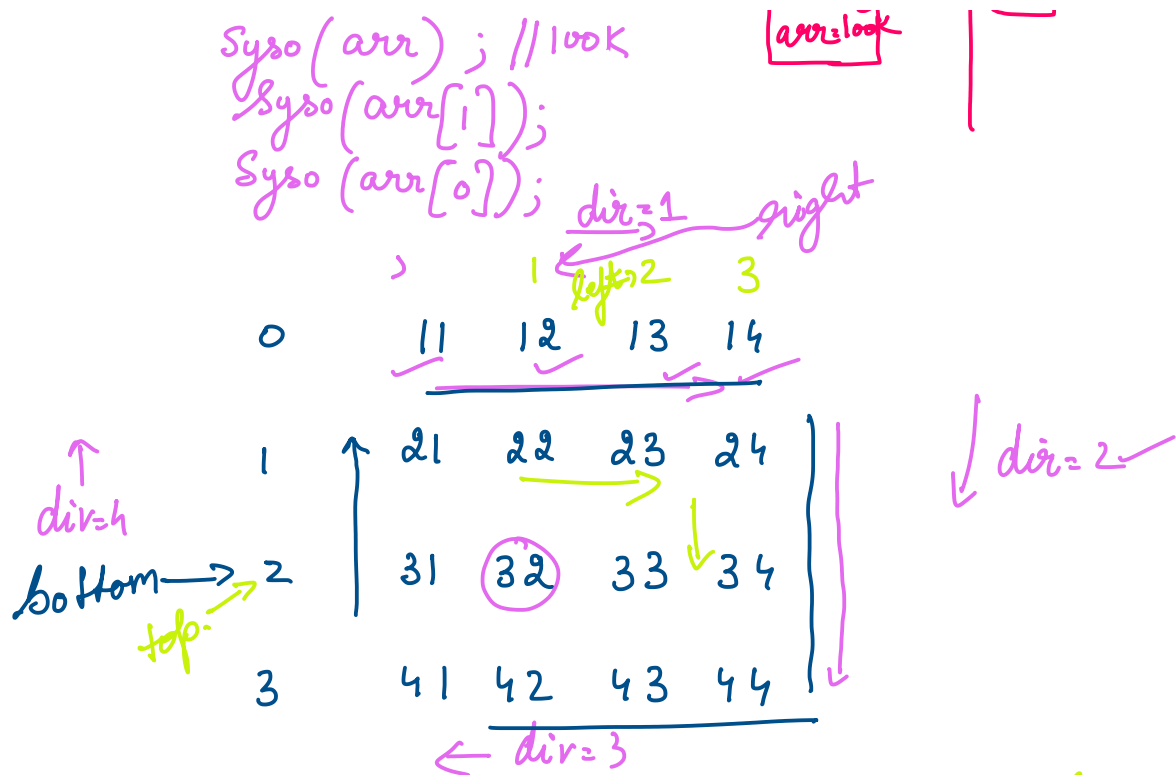 Syso(arr); //100K
arr=100K
Syso(arr[1]);
Syso(arr[0]);
dir=1
right
1 left 2 3
0 11 12 13 14
1 21 22 23 24
dir=2
dir=4
bottom 2 31 32 33 34
top
3 41 42 43 44
dir=3